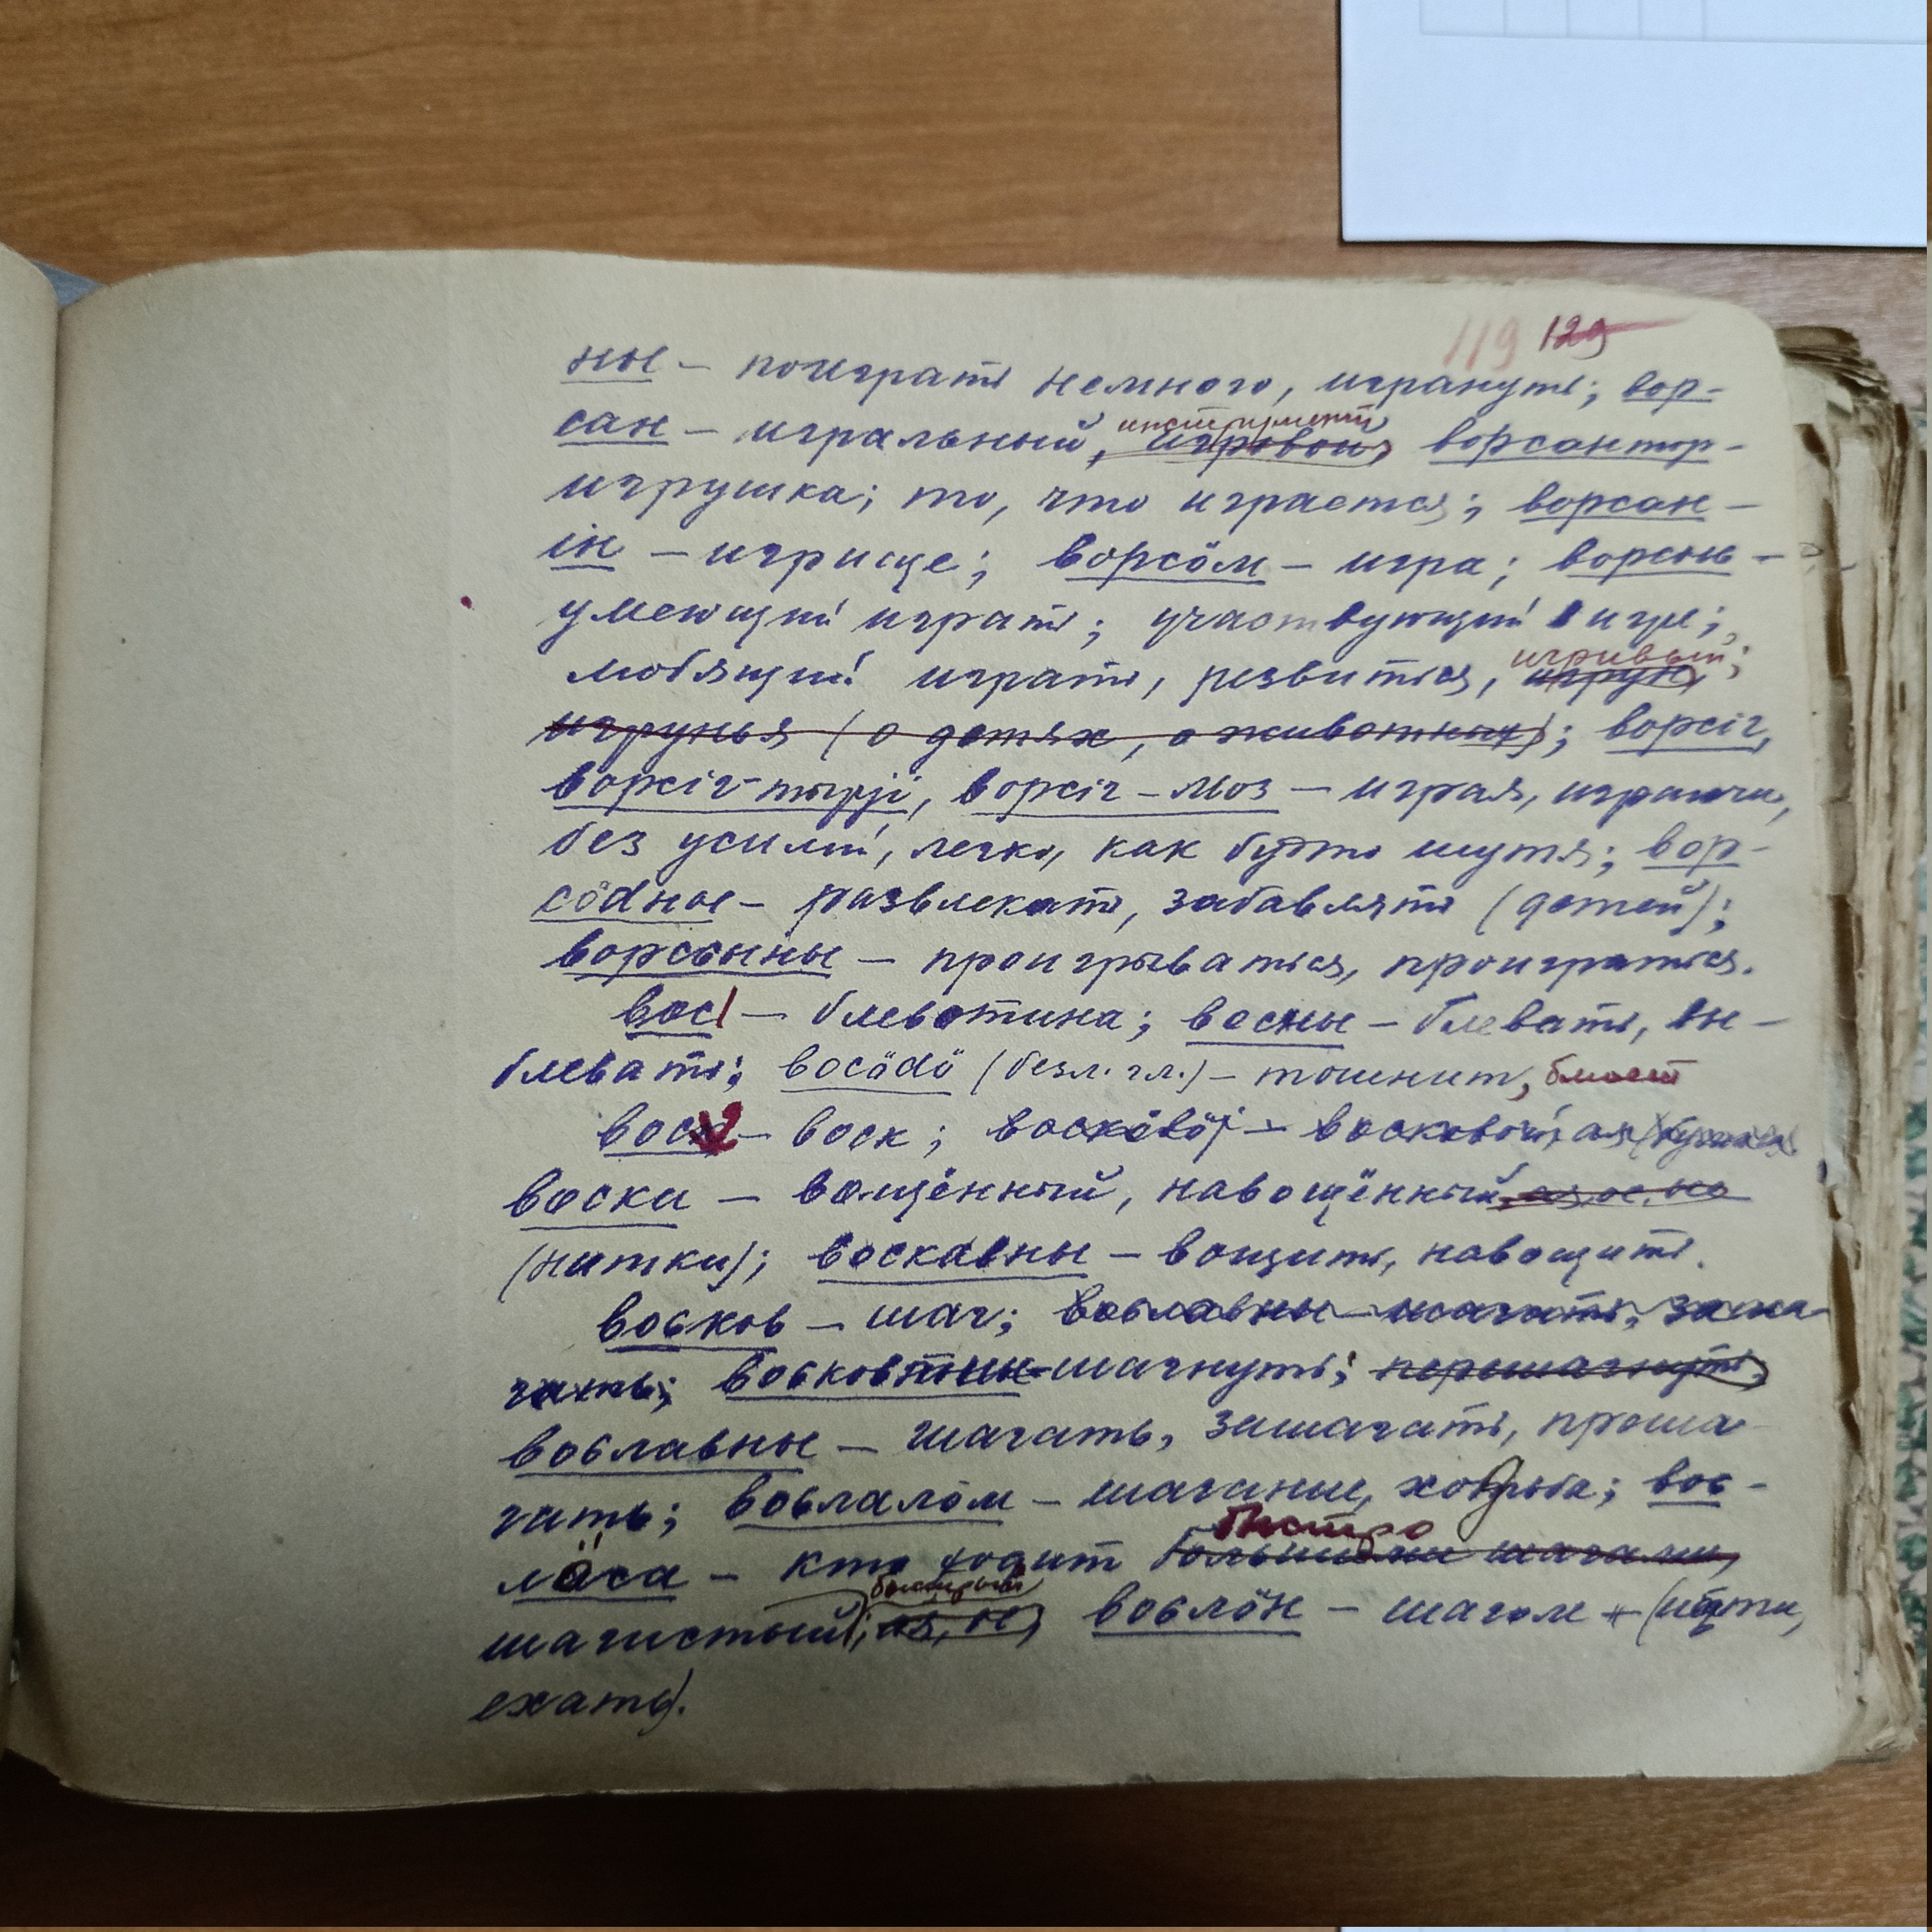 119 129
ны – поиграть немного, игрануть; вор-
сан – игральный, игровой, инструмент ворсантор-
игрушка; то, что играется; ворсан-
ін – игрище; ворсӧм – игра; ворсысь –
умеющий играть; участвующий в игре;
любящий играть, резвиться, игрун, игривый;
игрунья (о детях, о животных); ворсіг,
ворсіг-тырјі, ворсіг-моз – играя, играючи,
без усилий, легко, как будто шутя; вор-
сӧdны – развлекать, забавлять (детей);
ворссыны – проигрываться, проиграться.
вос1 – блевотина; восны – блевать, вы-
блевать; восӧdӧ (безл. гл.) – тошнит, блюёт
воск2 – воск; восковӧј – восковой, ая
воска – вощённый, навощённый, ая, ое, но
(нитки); воскавны – вощить, навощить.
восков – шаг; вославны – шагать, заша-
гать; восковтны – шагнуть; перешагнуть,
вославны – шагать, зашагать, проша-
гать; вослалӧм – шагание, ходьба; вос-
лӧса – кто ходит быстро большими шагами,
шагистый, быстрый; ая, ое, вослӧн – шагом (идти,
ехать).